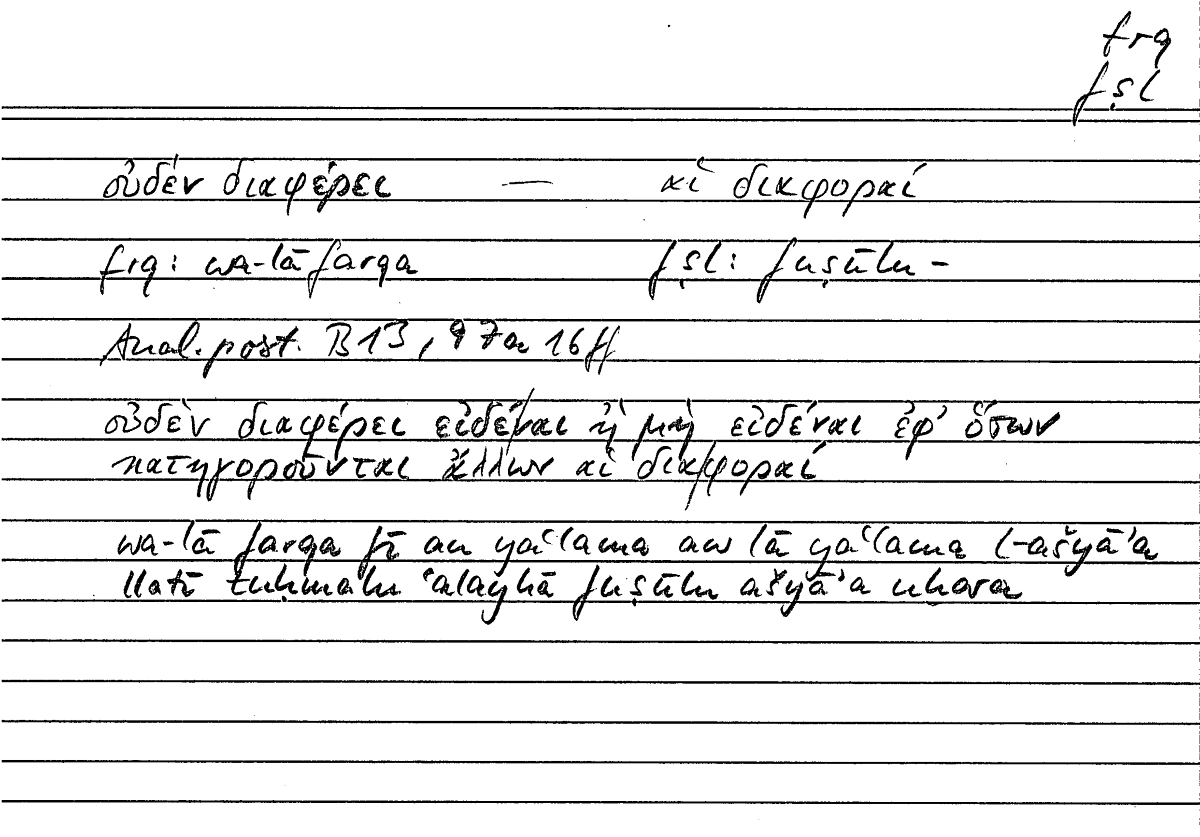 frq
fṣl
οὐδέν διαφέρει — αἱ διαφοραί
frq: wa-lā farqa fṣl: fuṣūlu -
Anal. post. B13, 97a 16ff
οὐδὲν διαφέρει εἰδέναι ἢ μὴ εἰδέναι ἐφ' ὅσων
κατηγοροῦνται ἄλλων αἱ διαφοραί
wa-lā farqa fī an yaʿlama aw lā yaʿlama l-ašyāʾa
llatī tuḥmalu ʿalayhā fuṣūlu ašyāʾa uḫara